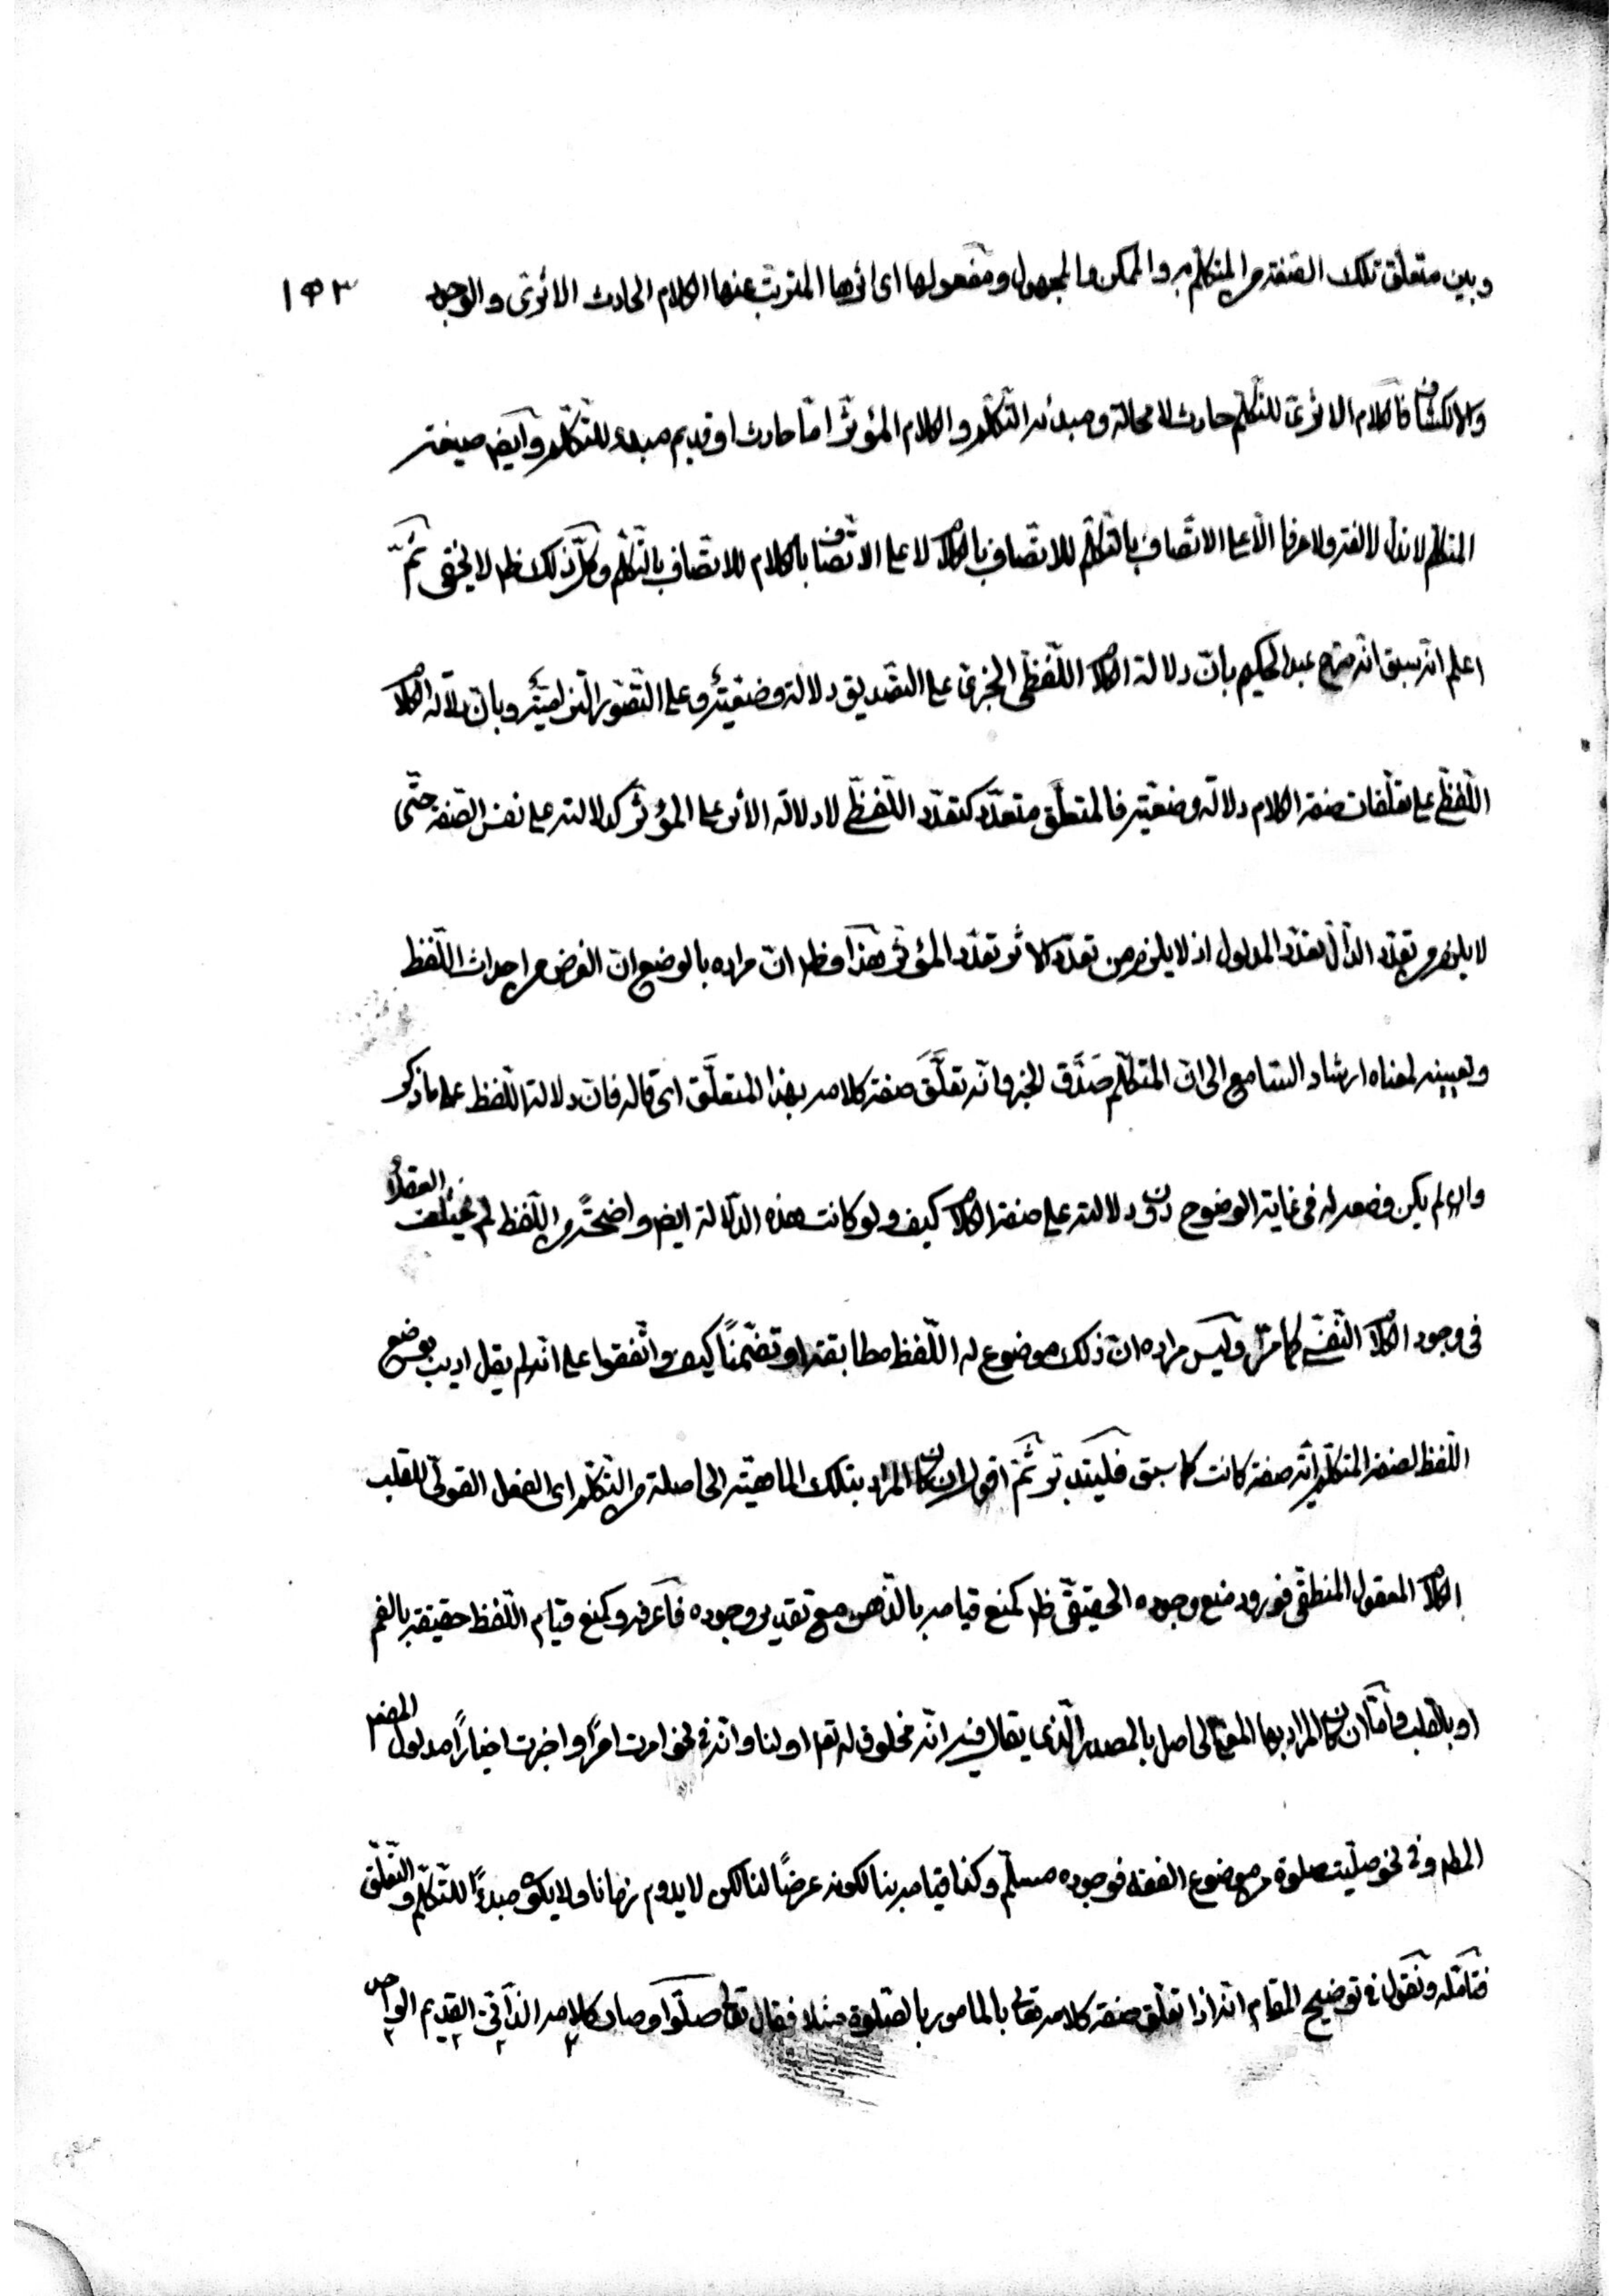 وبين متعلق تلك الصفة من المتكلم به والممكن والمجهول ومفعولها اى اثرها المترتب عنها الكلام الحادث الاثرى والوجود ١٥٣
والانكشاف فالكلام الاثرى للتكلم حادث لا محالة ومبدئه التكلم والكلام المؤثر اما حادث او قديم مبدء للتكلم وايضا صيغة
المتكلم لا تدل لا لغة ولا عرفا الا على الاتصاف بالتكلم للاتصاف بالكلام لا على الاتصاف بالكلام للاتصاف بالتكلم وكل ذلك ظ لا يخفى ثم
اعلم انه سبق انه صرح عبد الحكيم بان دلالة الكلام اللفظى الخبرى على التصديق دلالة وضعية وعلى التصور التزامية وبان دلالة الكلام
اللفظى على تعلقات صفة الكلام دلالة وضعية فالمتعلق متعدد كتعدد اللفظى لا دلالة الاثر على المؤثر كدلالته على نفس الصفة حتى
لا يلزم من تعدد الدال تعدد المدلول اذ لا يلزم من تعدد الاثر تعدد المؤثر هذا وظ ان مراده بالوضع ان الغرض من احداث اللفظ
وتعيينه لمعناه ارشاد السامع الى ان المتكلم صدق الخبر وانه تعلق صفة كلامه بهذا المتعلق اى قاله فان دلالة اللفظ على ما ذكر
وان لم يكن وضعه له فى غاية الوضوح دون دلالته على صفة الكلام كيف ولو كانت هذه الدلالة ايضا واضحة من اللفظ لم يختلف العقلاء
فى وجود الكلام النفسى كما مر وليس مراده ان ذلك موضوع له اللفظ مطابقة او تضمنا كيف واتفقوا على انه لم يقل اديب بوضع
اللفظ لصفة المتكلم اية صفة كانت كما سبق فليتدبر ثم اقول ان كان المراد بتلك الماهية الحاصلة من التكلم اى الفعل القولى للقلب
الكلام المعقول المنطقى فورود منع وجوده الحقيقى ظ كمنع قيامه بالذهن مع تقدير وجوده فاعرفه وكمنع قيام اللفظ حقيقة بالفم
او بالقلب واما ان كان المراد بها المعنى الحاصل بالمصدر الذى يقال فيه انه مخلوق له تعا او لنا وانه فى نحو امرت امرا واخبرت اخبارا مدلول المفعول
المطلق وفى نحو صليت صلوة من موضوع الفقه فوجوده مسلم وكذا قيامه بنا لكونه عرضا لنا لكن لا يدوم زمانا ولا يكون مبدء للتكلم والتعلق
فتامله ونقول فى توضيح المقام انه اذا تعلق صفة كلامه تعالى بالمامور بالصلوة مثلا فقال تعالى صلوا وصار كلامه الذاتى القديم الواحد